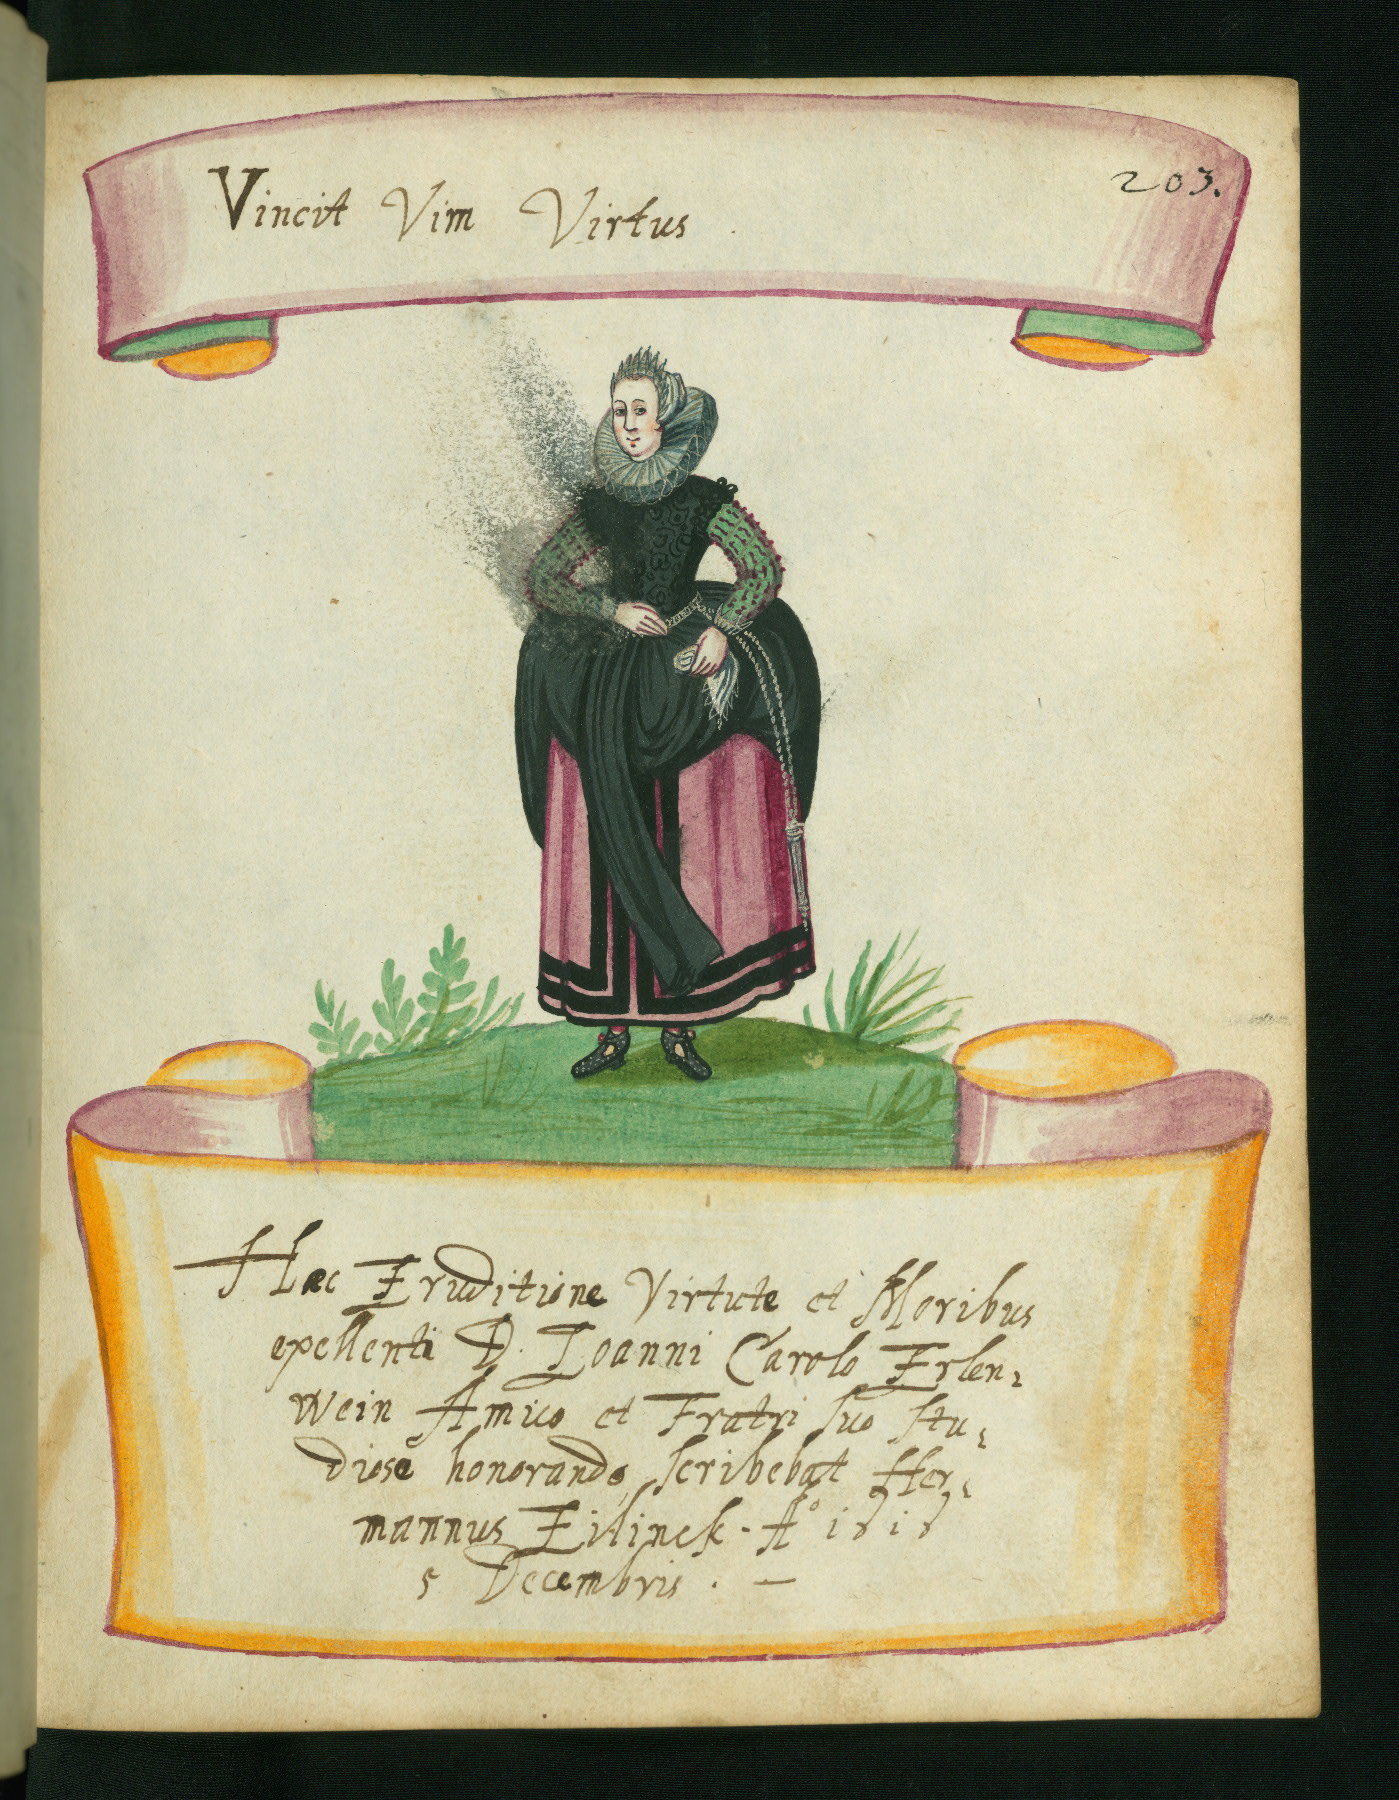 203.
Vincit Vim Virtus
Hæc Eruditione Virtute et Moribus
expellenti D. Ioanni Carolo Erlen
wein Amico et Fratri suo stu
diosè honorando scribebat Her
mannus Eilinck. Aº
5 Decembris. —